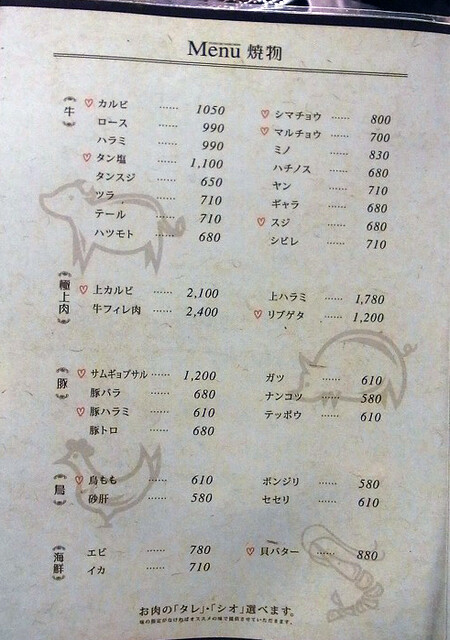 Menu 焼物
牛
♡ カルビ …… 1050
ロース …… 990
ハラミ …… 990
♡ タン塩 …… 1,100
タンスジ …… 650
ツラ …… 710
テール …… 710
ハツモト …… 680
♡ シマチョウ …… 800
♡ マルチョウ …… 700
ミノ …… 830
ハチノス …… 680
ヤン …… 710
ギャラ …… 680
♡ スジ …… 680
シビレ …… 710
極上肉
♡ 上カルビ …… 2,100
牛フィレ肉 …… 2,400
上ハラミ …… 1,780
♡ リブゲタ …… 1,200
豚
♡ サムギョプサル …… 1,200
豚バラ …… 680
♡ 豚ハラミ …… 610
豚トロ …… 680
ガツ …… 610
ナンコツ …… 580
テッポウ …… 610
鳥
♡ 鳥もも …… 610
砂肝 …… 580
ボンジリ …… 580
セセリ …… 610
海鮮
エビ …… 780
イカ …… 710
♡ 貝バター …… 880
お肉の「タレ」・「シオ」選べます。
味の指定がなければオススメの味で提供させていただきます。